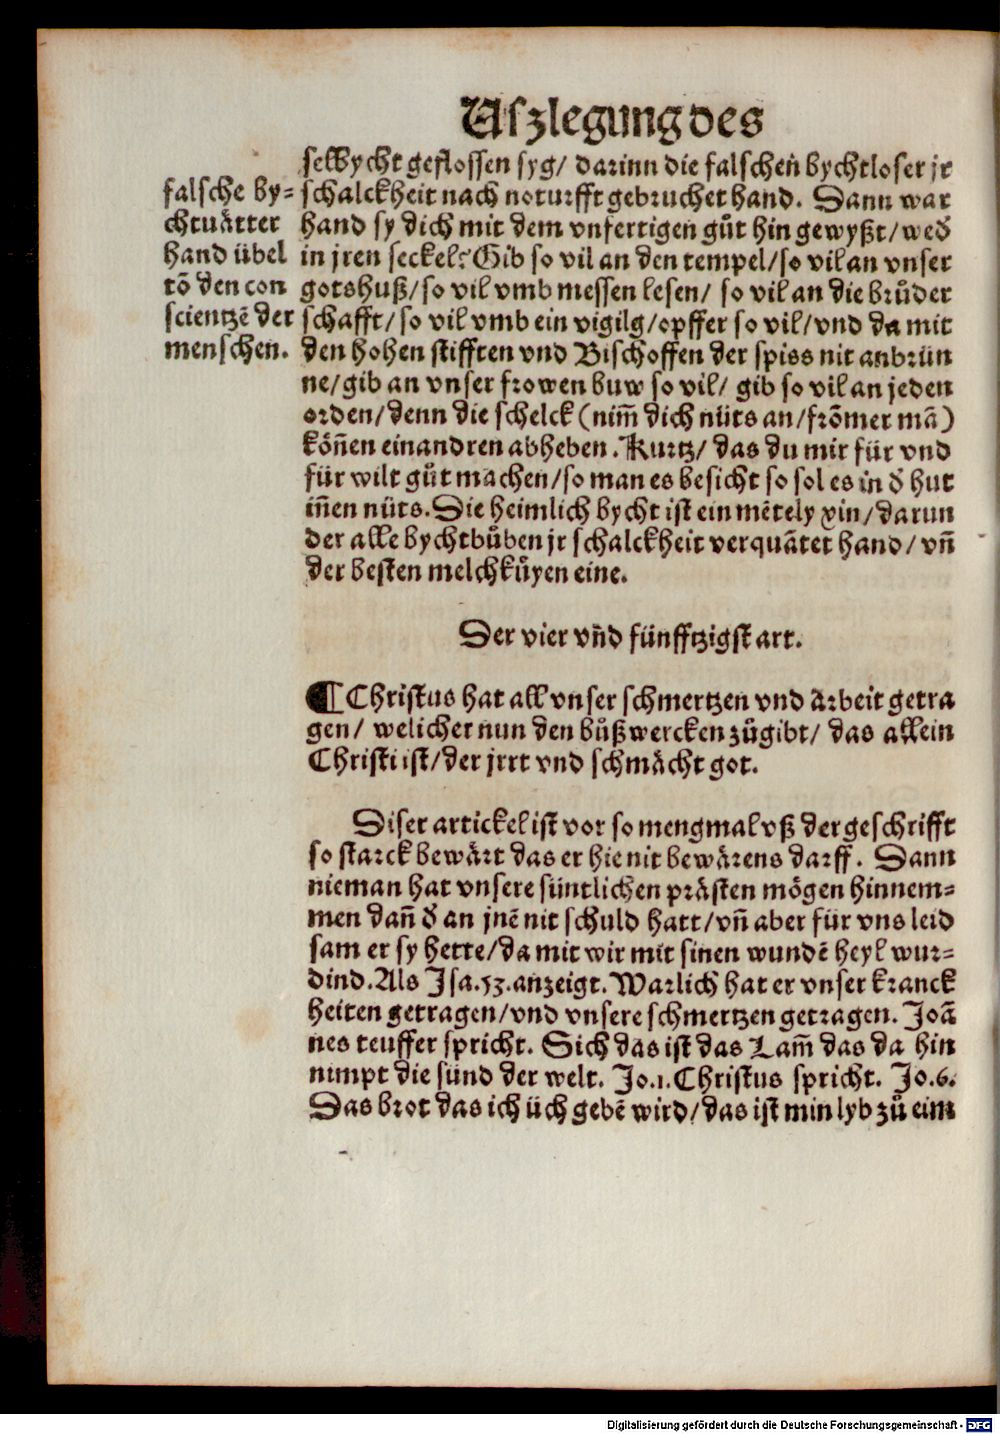 Uſzlegung des
ſelbycht gefloſſen ſyg/ darinn die falſchen bychtloſer jr
ſchalckheit nach noturfft gebruchet hand. Dann war
hand ſy dich mit dem vnfertigen guͦt hin gewyßt/ wed̕
in jren ſeckel? Gib ſo vil an den tempel/ſo vil an vnſer
gotshuß/ſo vil vmb meſſen leſen/ ſo vil an die bruͤder
ſchafft/ſo vil vmb ein vigilg/opffer ſo vil/vnd da mit
den hohen ſtifften vnd Biſchoffen der ſpiss nit anbrün
ne/gib an vnſer frowen buw ſo vil/ gib ſo vil an jeden
orden/denn die ſchelck (nim̄ dich nüts an/frōmer mā)
koͤn̄en einandren abheben. Kurtz/ das du mir für vnd
für wilt guͦt machen/ſo man es beſicht ſo ſol es in d̕ hut
in̄en nüts. Die heimlich bycht iſt ein mētely xin/darun
der alle bychtbuͦben jr ſchalckheit verquātet hand/ vn̄
der beſten melchkuͤyen eine.
falſche by⸗
chtuaͤtter
hand übel
tō den con
ſcientzē der
menſchen.
Der vier vn̄d fünfftzigſt art.
¶ Chriſtus hat all vnſer ſchmertzen vnd arbeit getra
gen/ welicher nun den buͦßwercken zuͦgibt/ das allein
Chriſti iſt/der jrrt vnd ſchmaͤcht got.
Diſer artickel iſt vor ſo mengmal vß der geſchrifft
ſo ſtarck bewaͤrt das er hie nit bewaͤrens darff. Dann
nieman hat vnſere ſüntlichen praͤſten moͤgen hinnem⸗
men dan̄ d̕ an jnē nit ſchuld hatt/vn̄ aber für vns leid
ſam er ſy hette/da mit wir mit ſinen wundē heyl wur⸗
dind. Als Iſa.53. anzeigt. Warlich hat er vnſer kranck
heiten getragen/vnd vnſere ſchmertzen getragen. Joā
nes teuffer ſpricht. Sich das iſt das Lam̄ das da hin
nimpt die ſünd der welt. Jo.1. Chriſtus ſpricht. Jo.6.
Das brot das ich üch gebē wird/das iſt min lyb zuͦ eim
Digitalisierung gefördert durch die Deutsche Forschungsgemeinschaft - DFG